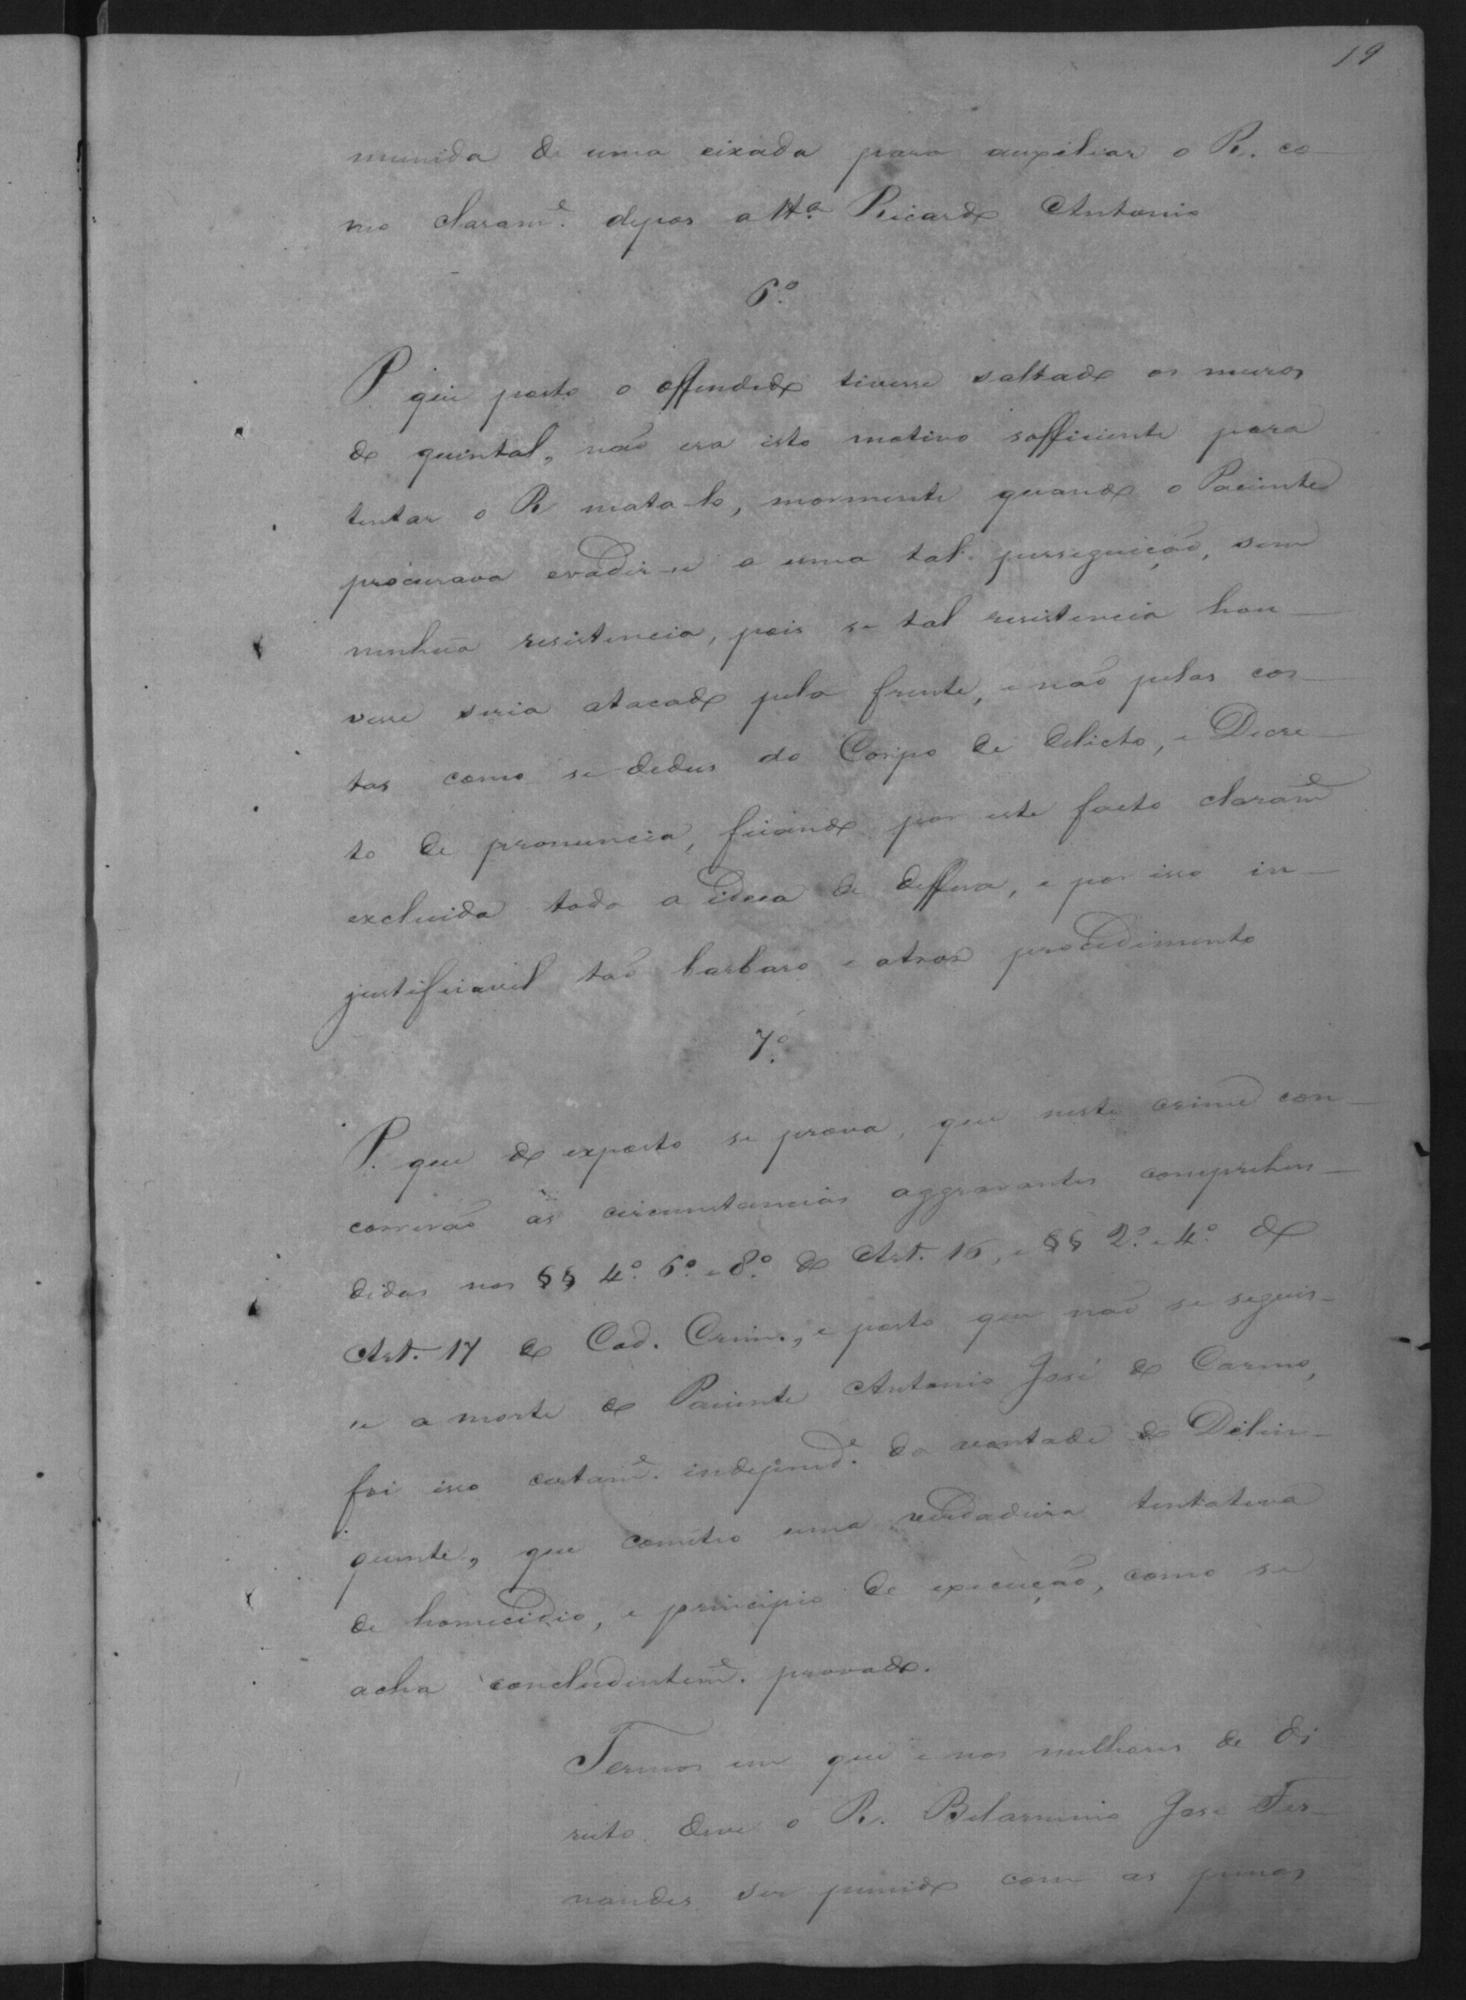 19
munida de uma eixada para auxiliar o R. co-
mo claramᵉ. depoz a ttª Ricardo Antonio
6º
P. que posto o offendido tivesse saltado os muros
do quintal, não era isto motivo sufficiente para
tentar o R mata-lo, mormente quando o Paciente
procurava evadir-se a uma tal perseguição, sem
nenhũa resistencia, pois se tal resistencia hou-
vesse seria atacado pela frente, e não pelas cos-
tas como se dedus do Corpo de delicto, e Decre-
to de pronuncia, ficando por este facto claramᵉ
excluida toda a ideea de deffeza, e por isso in-
justificavel tão barbaro e atroz procedimento
7º
P. que do exposto se prova, que neste crime con-
correrão as circunstancias aggravantes comprehen-
didas nos §§ 4º. 6º. e 8º. do Art. 16, e §§ 2º. e 4º. do
Art. 17 do Cod. Crim., e posto que não se seguis-
se a morte do Paciente Antonio José do Carmo,
foi isso certamᵉ. independᵉ. da vontade do Delin-
quente, que cometeo uma verdadeira tentativa
de homecidio, e principio de execução, como se
acha concludentemᵉ. provado.
Termos em que e nos melhores de Di
reito deve o R. Belarmino José Fer-
nandes ser punido com as penas